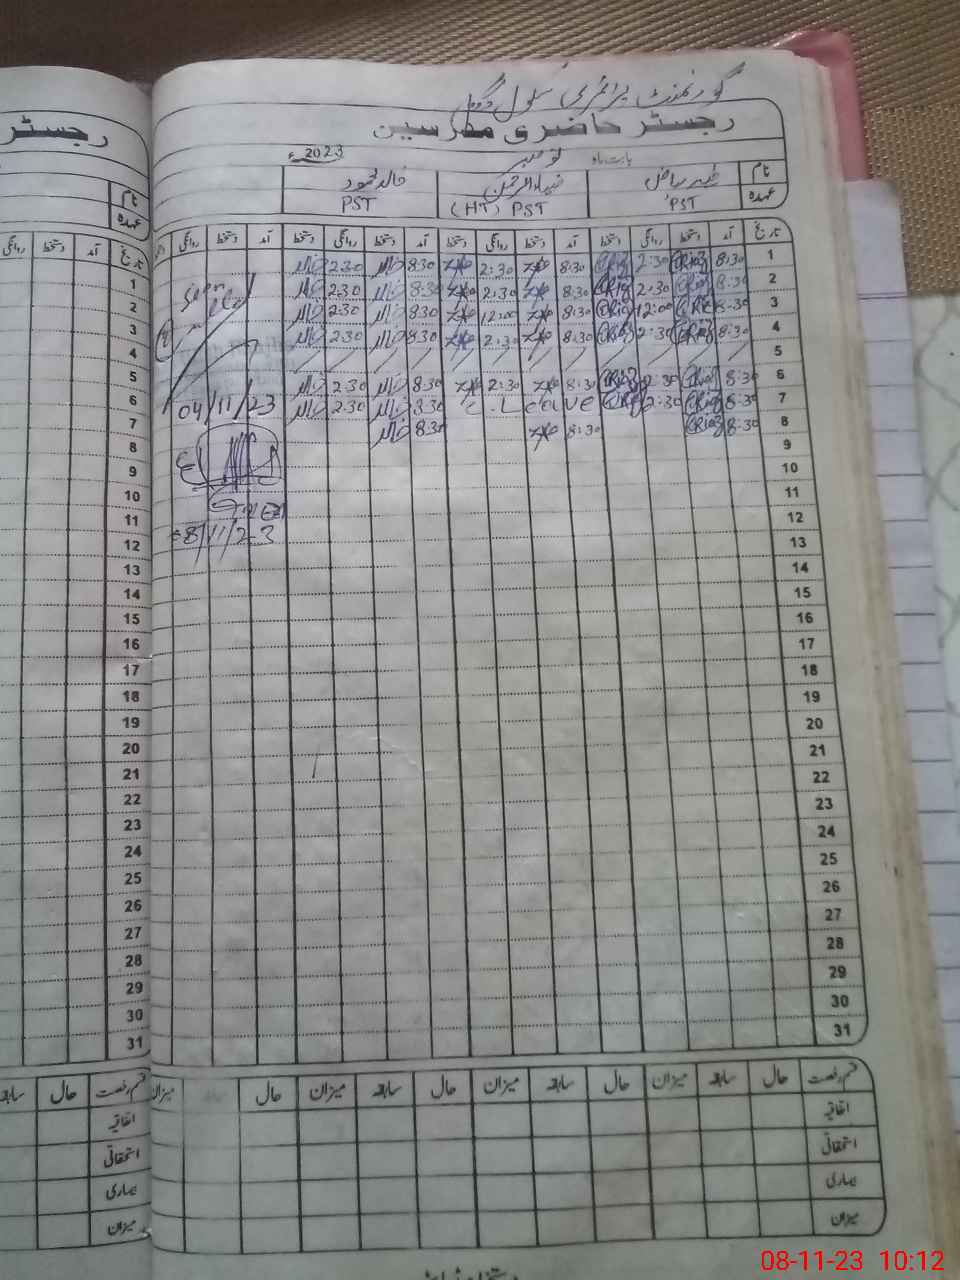 گورنمنٹ پرائمری سکول
رجسٹر حاضری مدرسین
بابت ماہ نومبر 2023ء
نام ظہیر ریاض ضیاء الرحمن خالد محمود
عہدہ PST PST (HT) PST
تاریخ آمد دستخط روانگی دستخط آمد دستخط روانگی دستخط آمد دستخط روانگی دستخط آمد دستخط روانگی
1 8:30 2:30 8:30 2:30 8:30 خالد 2:30 خالد
2 8:30 2:30 8:30 2:30 8:30 خالد 2:30 خالد
3 8:30 12:00 8:30 12:00 8:30 خالد 2:30 خالد
4 8:30 2:30 8:30 2:30 8:30 خالد 2:30 خالد
5
6 8:30 2:30 8:30 2:30 8:30 خالد 2:30 خالد
7 8:30 2:30 c . Leave 8:30 خالد 2:30 خالد
8 8:30 8:30 8:30 خالد
9
10
11
12
13
14
15
16
17
18
19
20
21
22
23
24
25
26
27
28
29
30
31
Seen
04/11/23
8/11/23
قسم رخصت حال سابقہ میزان حال سابقہ میزان حال سابقہ میزان حال سابقہ میزان
اتفاقیہ
استحقاقی
بیماری
میزان
رجسٹر
نام
عہدہ
تاریخ آمد دستخط روانگی
1
2
3
4
5
6
7
8
9
10
11
12
13
14
15
16
17
18
19
20
21
22
23
24
25
26
27
28
29
30
31
قسم رخصت حال سابقہ
اتفاقیہ
استحقاقی
بیماری
میزان
08-11-23 10:12